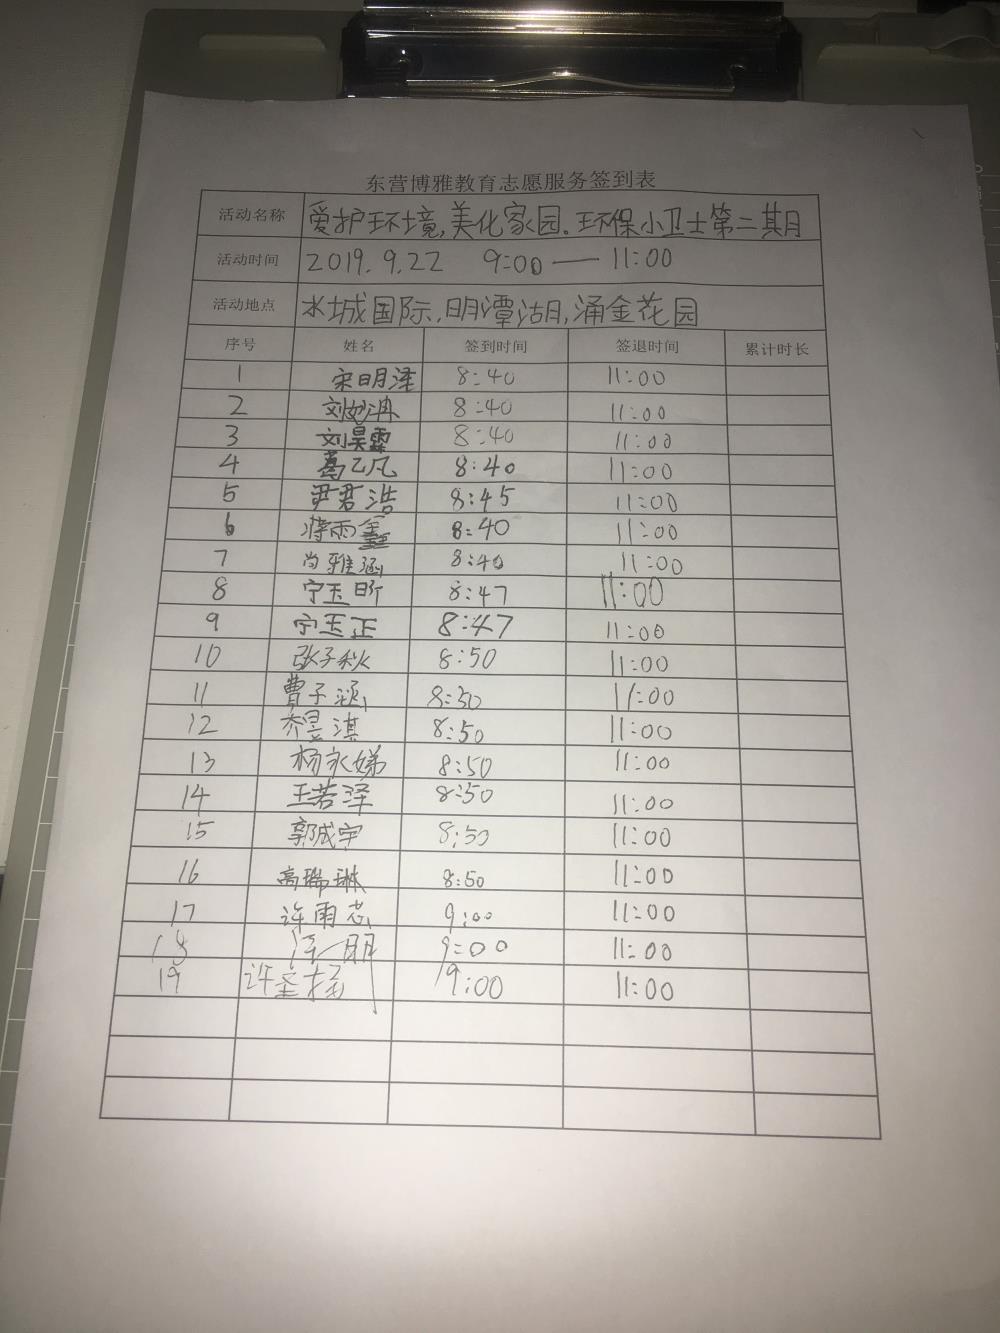 东营博雅教育志愿服务签到表
活动名称 爱护环境,美化家园。环保小卫士第二期
活动时间 2019.9.22 9:00—11:00
活动地点 水城国际,明潭湖,涌金花园
序号 姓名 签到时间 签退时间 累计时长
1 宋明泽 8:40 11:00
2 刘 8:40 11:00
3 刘昊霖 8:40 11:00
4 葛乙凡 8:40 11:00
5 尹君浩 8:45 11:00
6 蒋雨鑫 8:40 11:00
7 尚雅涵 8:40 11:00
8 宁玉昕 8:47 11:00
9 宁玉正 8:47 11:00
10 张子秋 8:50 11:00
11 曹子涵 8:50 11:00
12 乔昱淇 8:50 11:00
13 杨永娣 8:50 11:00
14 王若泽 8:50 11:00
15 郭成宇 8:50 11:00
16 高瑞琳 8:50 11:00
17 许雨芯 9:00 11:00
18 9:00 11:00
19 许圣 9:00 11:00